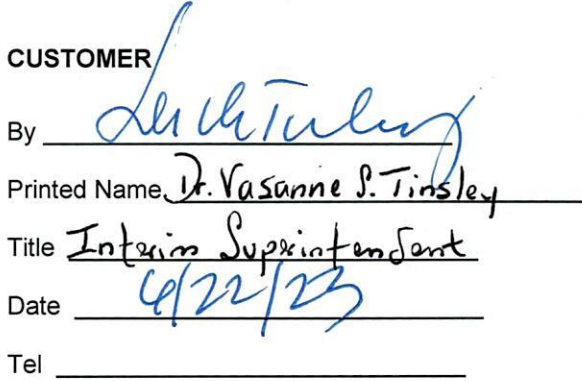 CUSTOMER
By
Printed Name Dr. Vasanne S. Tinsley
Title Interim Supxintendent
Date 6/22/23
Tel